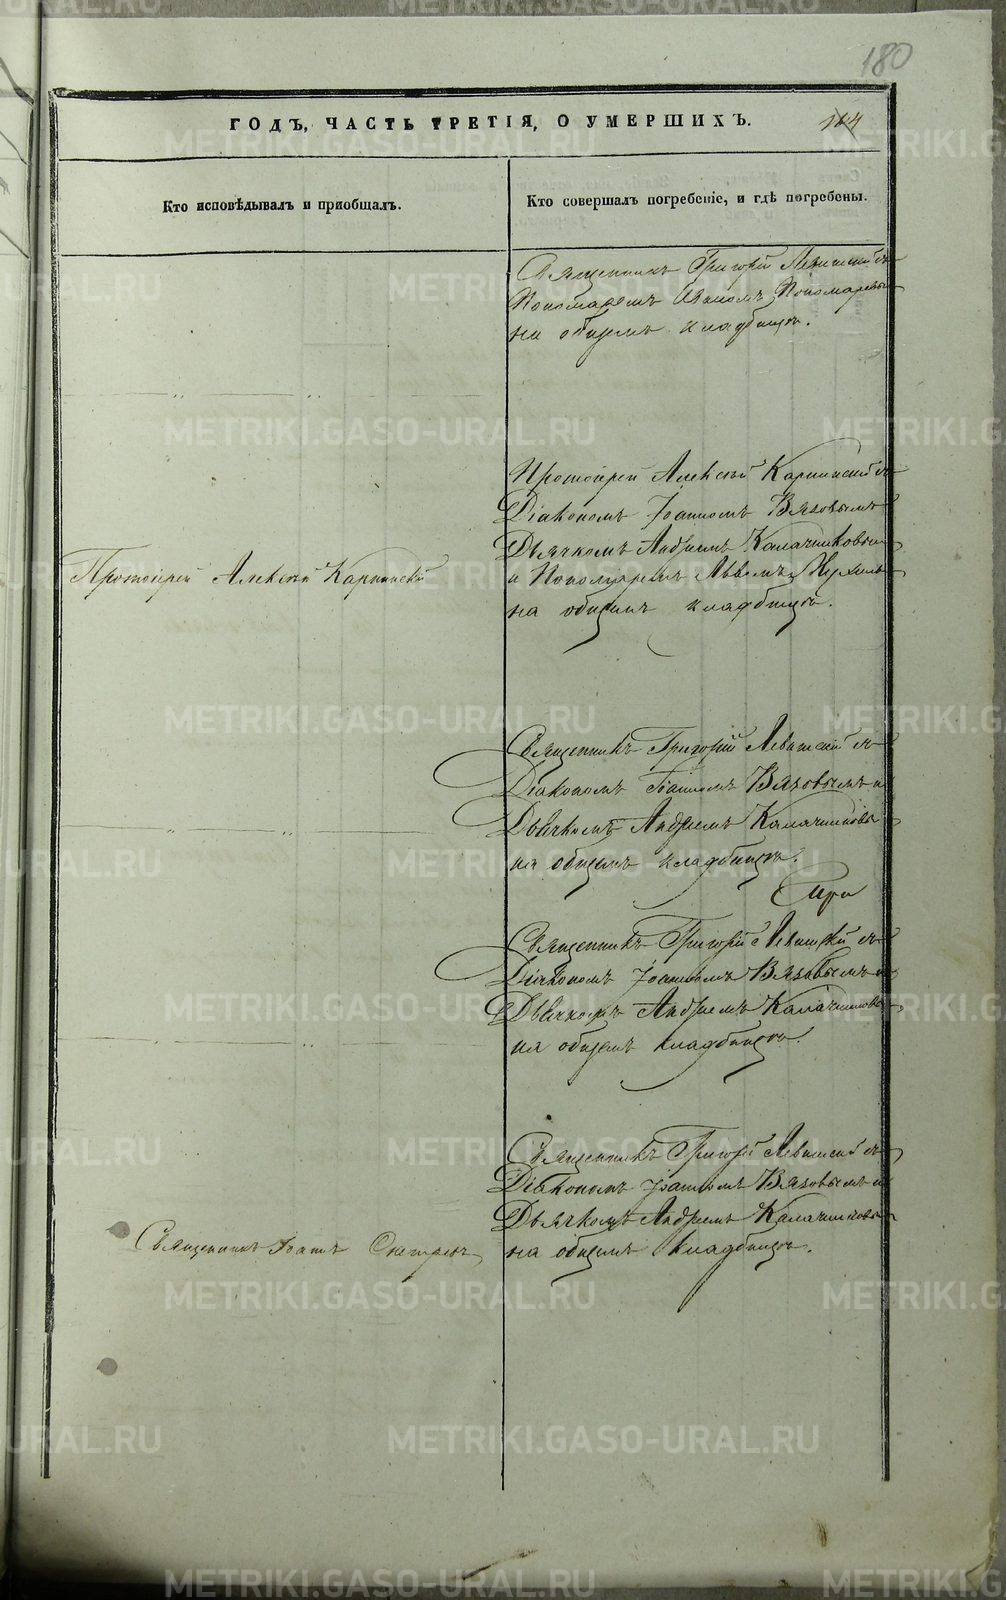 180
ГОДЪ, ЧАСТЬ ТРЕТІЯ, О УМЕРШИХЪ.
164
Кто исповѣдывалъ и пріобщалъ.
Кто совершалъ погребеніе, и гдѣ погребены.
Священникъ Григорій Левитскій съ
Пономаремъ Пономаревы
на общемъ кладбищѣ.
Протоіерей Алексѣй Карпинскій съ
Діакономъ Іоанномъ Вязовымъ
Дьячкомъ Андреемъ Калачниковым
и Пономаремъ Львомъ
на общемъ кладбищѣ.
Протоіерей Алексѣй Карпинскій
Священникъ Григорій Левитскій съ
Діакономъ Іоанномъ Вязовымъ и
Дьячкомъ Андреемъ Калачниковы
на общемъ кладбищѣ.
Священникъ Григорій Левитскій съ
Діакономъ Іоанномъ Вязовымъ и
Дьячкомъ Андреемъ Калачниковы
на общемъ кладбищѣ.
Священникъ Григорій Левитскій съ
Діакономъ Іоанномъ Вязовымъ и
Дьячкомъ Андреемъ Калачниковы
на общемъ кладбищѣ.
Священникъ Іоаннъ
METRIKI.GASO-URAL.RU